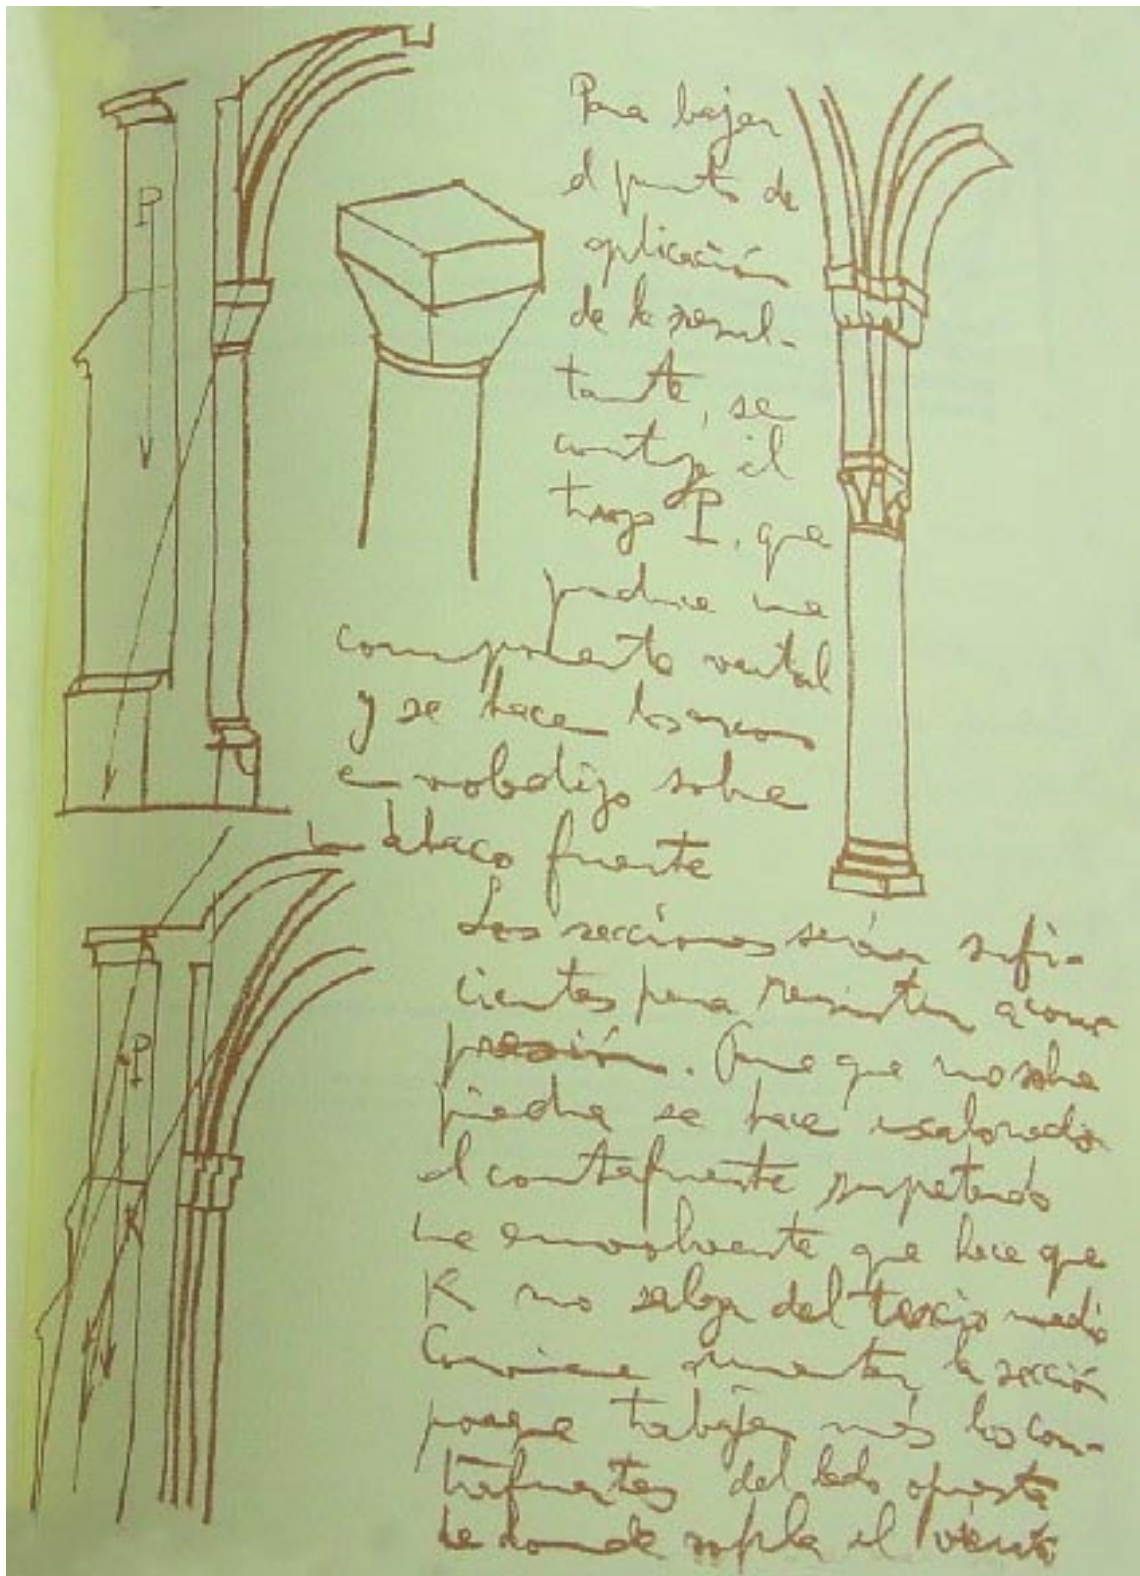 Para bajar
el punto de
aplicación
de la resul-
tante, se
el
trozo P, que
produce una
componente vertical
y se hace los arcos
en voladizo sobre
un ábaco fuerte
Las secciones serán sufi-
cientes para resistir a com
presión. Para que no sobre
piedra se hace escalonado
el contrafuerte respetando
una envolvente que hace que
K no salga del tercio medio
Conviene aumentar la sección
porque trabajan más los con-
trafuertes del lado opuesto
de donde sopla el viento
P
P
K